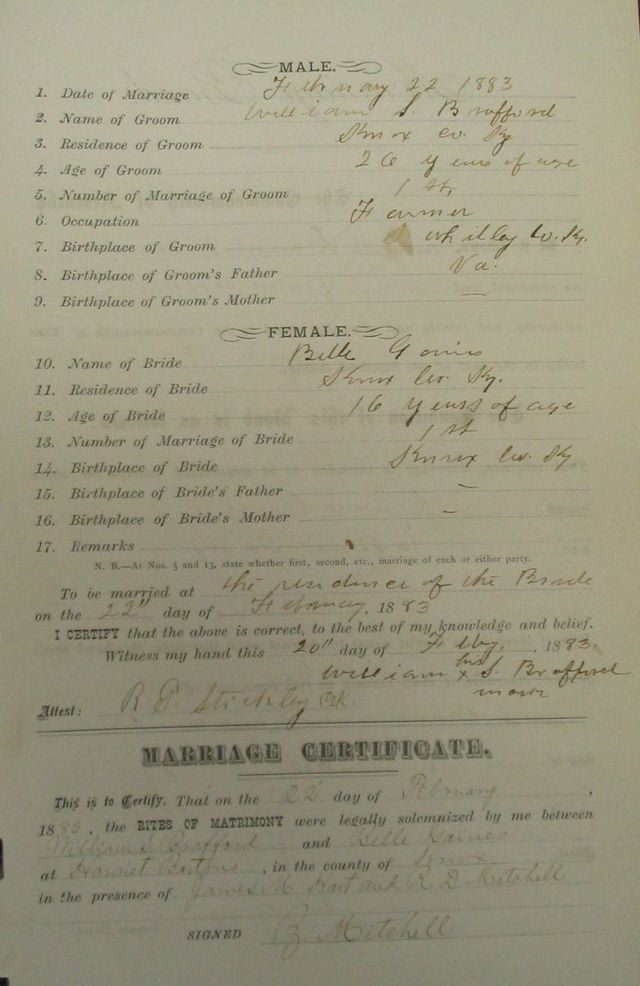 MALE.
1. Date of Marriage February 22 1883
2. Name of Groom William S. Brafford
3. Residence of Groom Knox Co. Ky
4. Age of Groom 26 Years of age
5. Number of Marriage of Groom 1 st,
6. Occupation Farmer
7. Birthplace of Groom Whitley Co. Ky.
8. Birthplace of Groom's Father Va.
9. Birthplace of Groom's Mother —
FEMALE.
10. Name of Bride Belle Gaines
11. Residence of Bride Knox Co. Ky.
12. Age of Bride 16 Years of age
13. Number of Marriage of Bride 1 st
14. Birthplace of Bride Knox Co. Ky
15. Birthplace of Bride's Father —
16. Birthplace of Bride's Mother —
17. Remarks
N. B.—At Nos. 5 and 13, state whether first, second, etc., marriage of each or either party.
To be married at the residence of the Bride
on the 22" day of February, 1883
I CERTIFY that the above is correct, to the best of my knowledge and belief.
Witness my hand this 20" day of Feby, 1883.
William his x mark S. Brafford
Attest: R. Stickley Clk.
MARRIAGE CERTIFICATE.
This is to Certify, That on the 22 day of February,
1883, the RITES OF MATRIMONY were legally solemnized by me between
William S Brafford and Belle Gaines
at Harriet, in the county of Knox
in the presence of James M Hart and R. D. Mitchell
SIGNED Mitchell